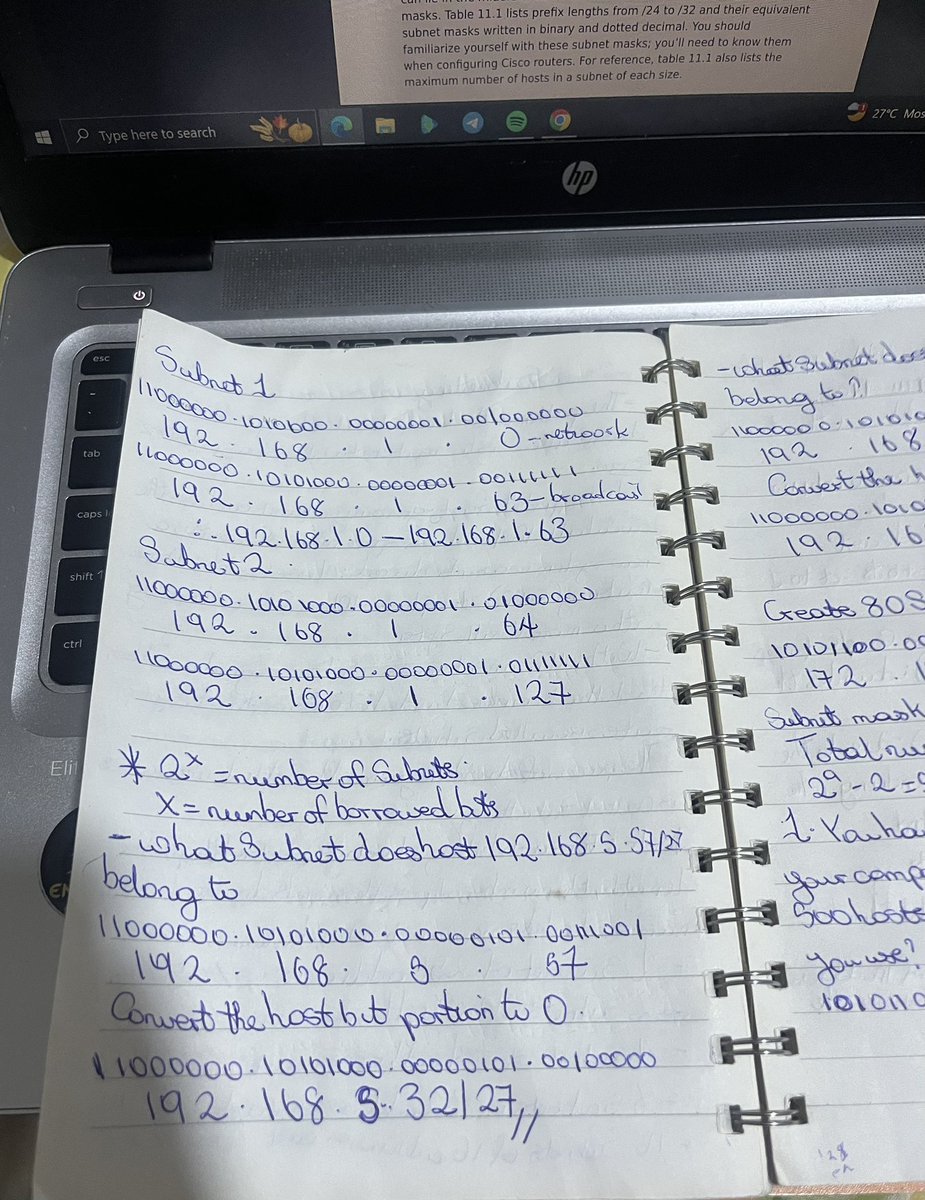 masks. Table 11.1 lists prefix lengths from /24 to /32 and their equivalent
subnet masks written in binary and dotted decimal. You should
familiarize yourself with these subnet masks; you'll need to know them
when configuring Cisco routers. For reference, table 11.1 also lists the
maximum number of hosts in a subnet of each size.
Type here to search
27°C Mos
hp
esc
tab
caps l
shift
ctrl
Eli
Subnet 1
11000000.1010100.00000001.00100000
192.168.1.0-network
11000000.10101000.00000001.00111111
192.168.1.63-broadcast
∴192.168.1.0-192.168.1.63
Subnet 2
11000000.10101000.00000001.01000000
192.168.1.64
11000000.10101000.00000001.01111111
192.168.1.127
* 2^x = number of Subnets.
X = number of borrowed bits
- what Subnet does host 192.168.5.57/27
belong to
11000000.10101000.00000101.00111001
192.168.5.57
Convert the host bit portion to 0.
11000000.10101000.00000101.00100000
192.168.5.32/27//
- what subnet does
belong to?
11000000.101010
192.168
Convert the h
11000000.1010
192.16
Create 80S
10101100.00
172.1
Subnet mask
Total nu
2^9-2=
1. You ha
your comp
500 hosts
you use?
1010110
128